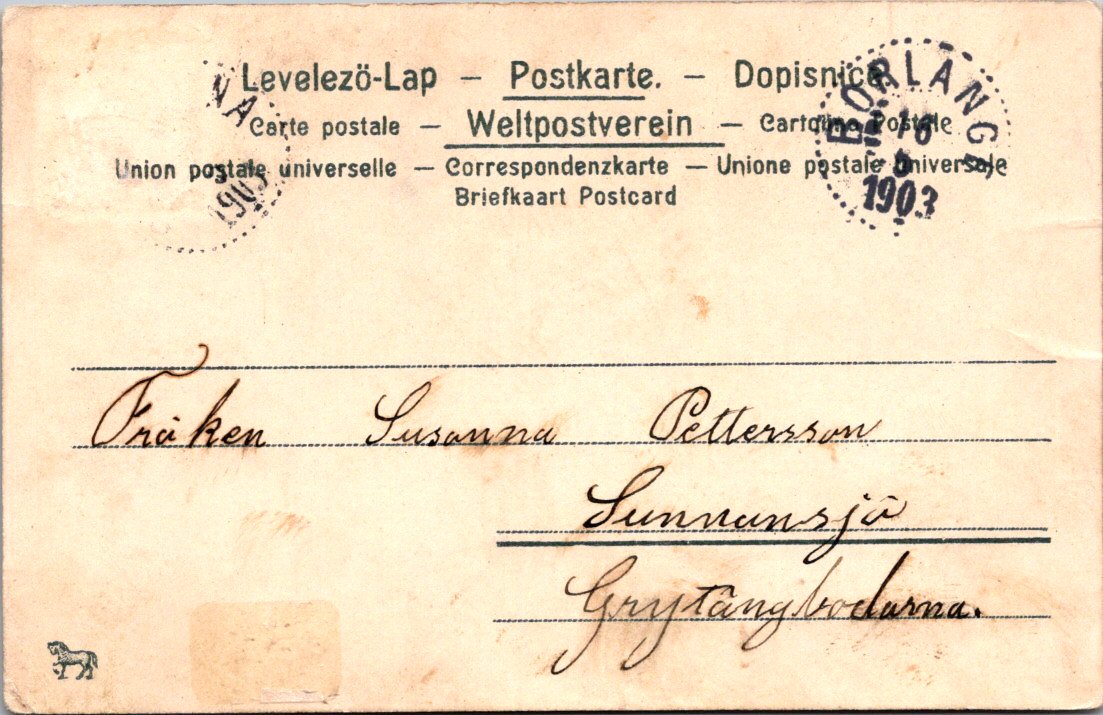 Levelező-Lap — Postkarte. — Dopisnice
Carte postale — Weltpostverein — Cartolina Postale
Union postale universelle — Correspondenzkarte — Unione postale universale
Briefkaart Postcard
NA
1903
BORLÄNGE
16
5
1903
Fröken Susanna Pettersson
Sunnansjö
Grytängbodarna.